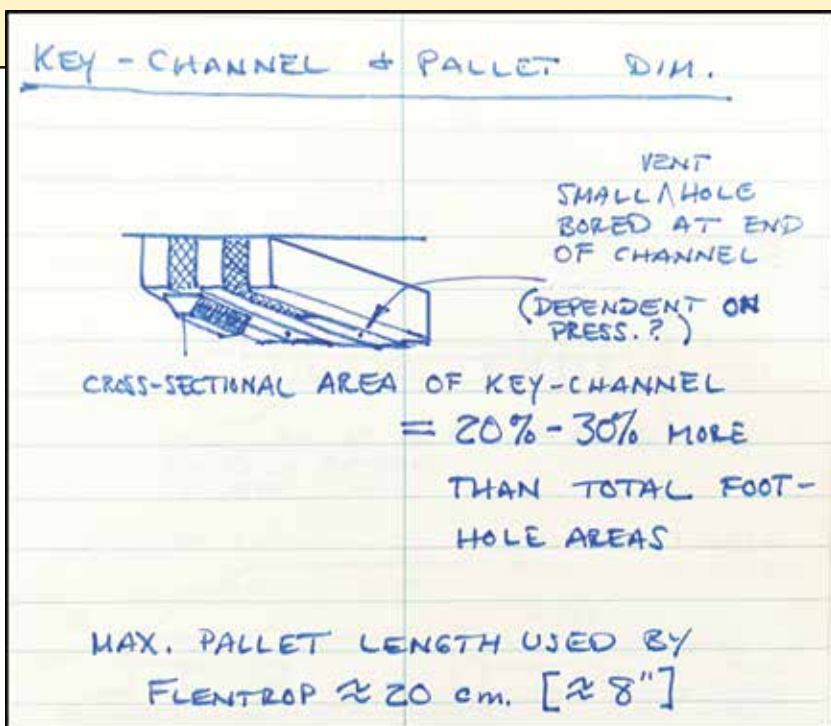 KEY - CHANNEL & PALLET DIM.
VENT
SMALL ∧ HOLE
BORED AT END
OF CHANNEL
(DEPENDENT ON
PRESS. ?)
CROSS-SECTIONAL AREA OF KEY-CHANNEL
= 20% - 30% MORE
THAN TOTAL FOOT-
HOLE AREAS
MAX. PALLET LENGTH USED BY
FLENTROP ≈ 20 cm. [≈ 8"]